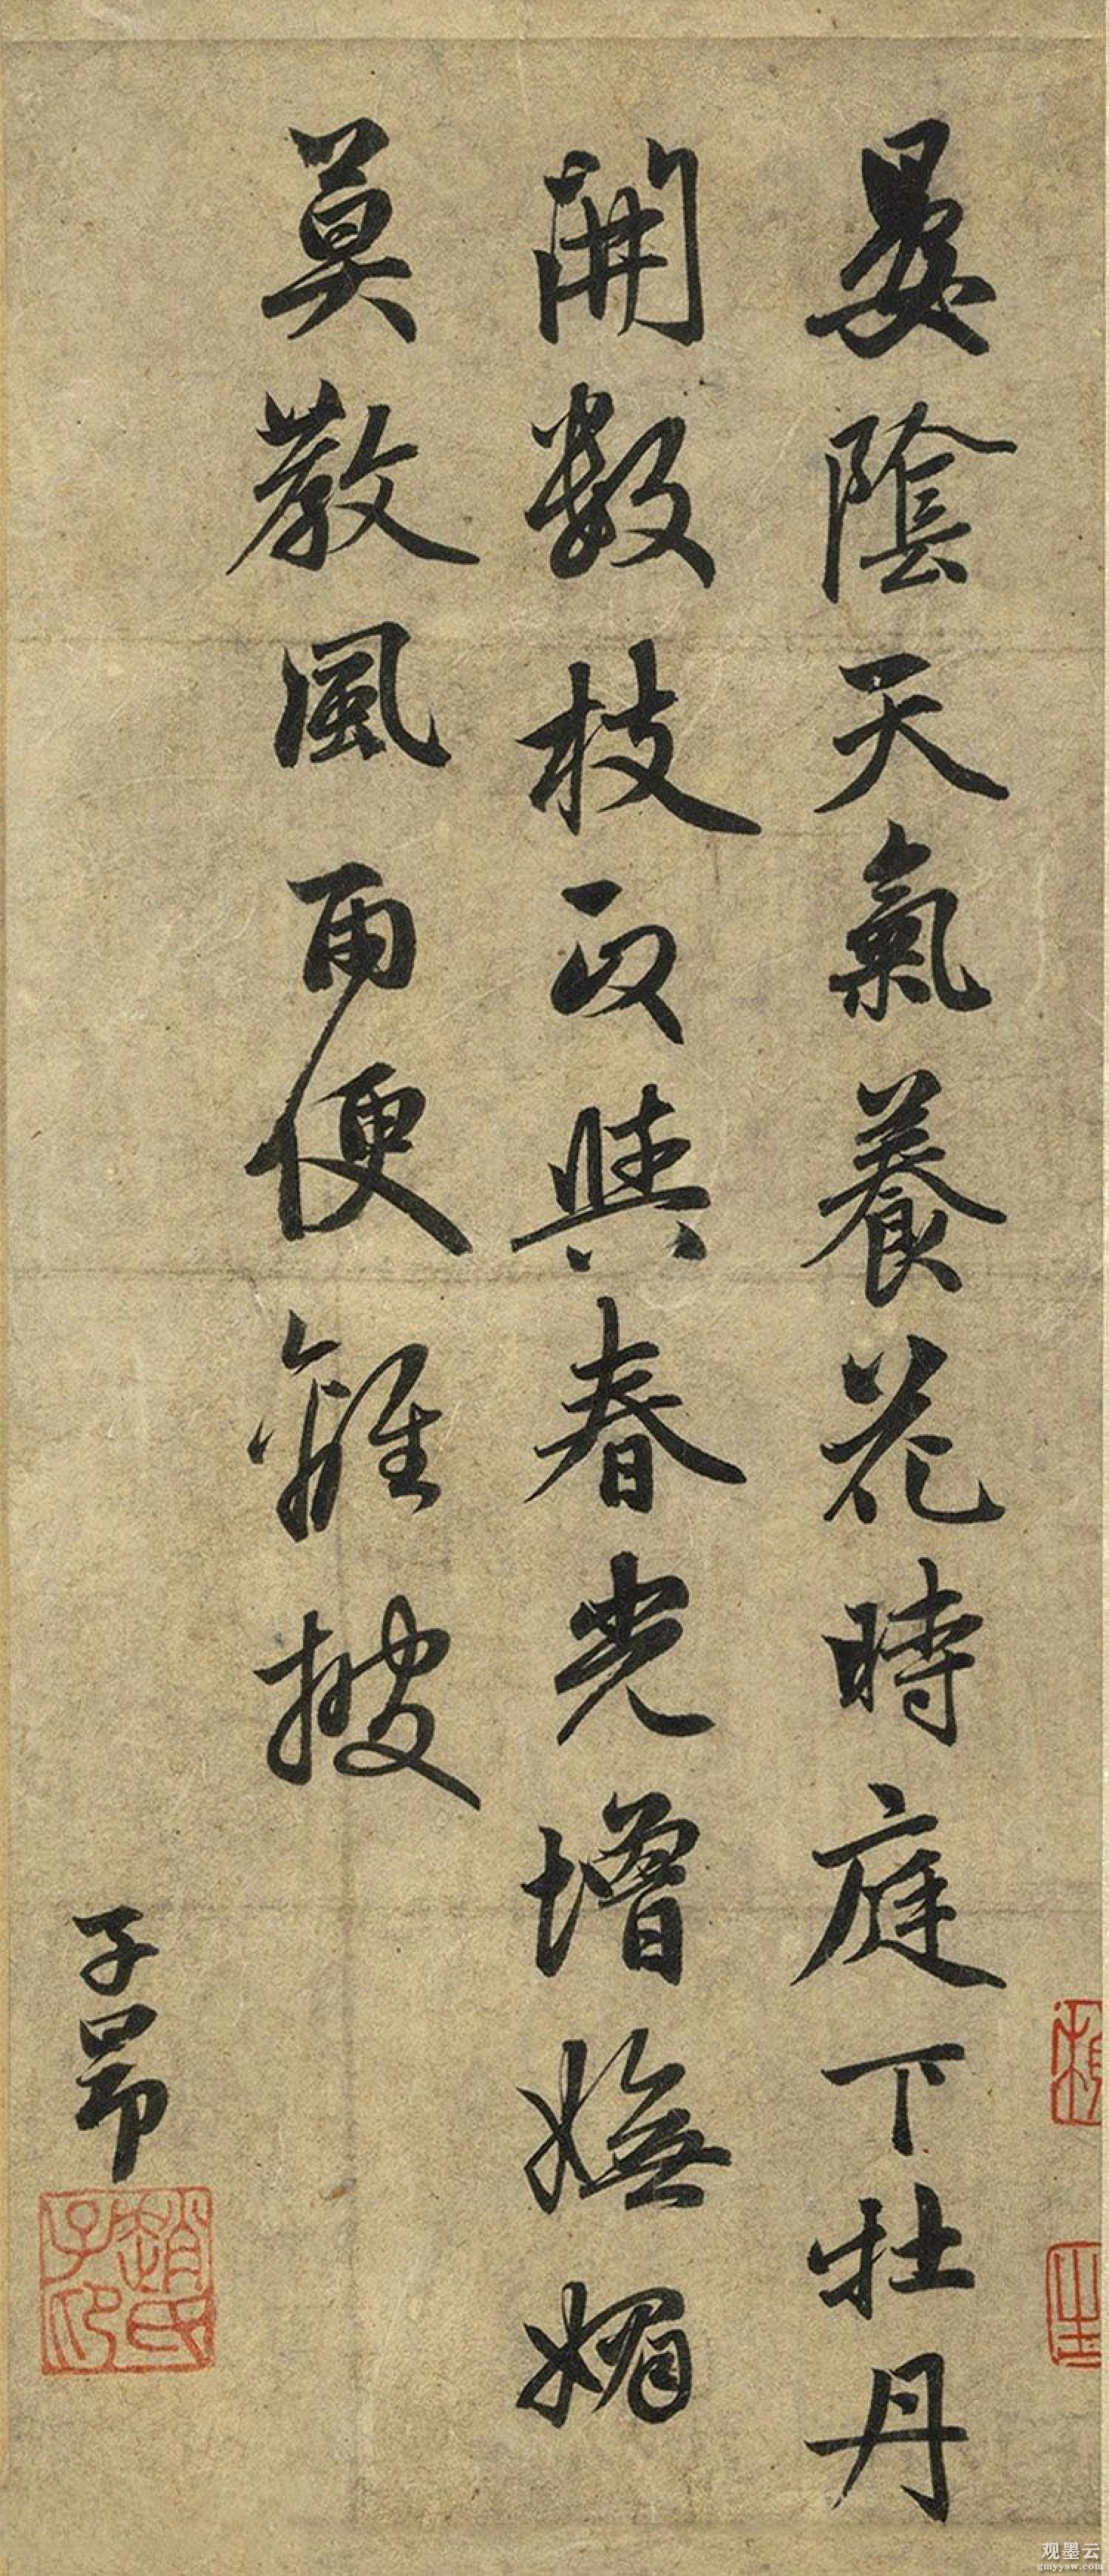 晏陰天氣養花時庭下牡丹
開數枝正與春光增嫵媚
莫教風雨便離披
子昂
趙氏子卬
观墨云
gmyysw.com